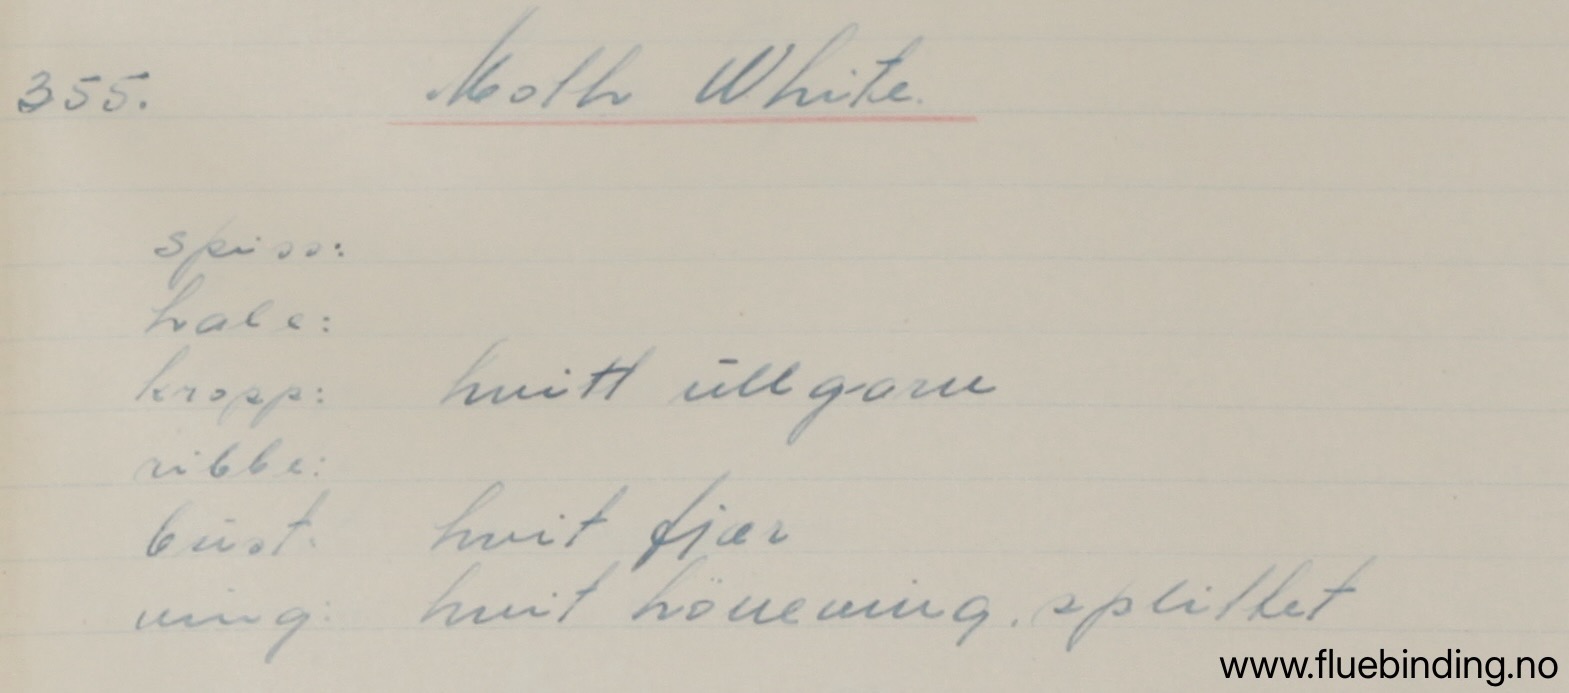 355. Moth White.
spiss:
hale:
kropp: hvitt ullgarn
ribbe:
bust: hvit fjær
ving: hvit höneving. splittet
www.fluebinding.no